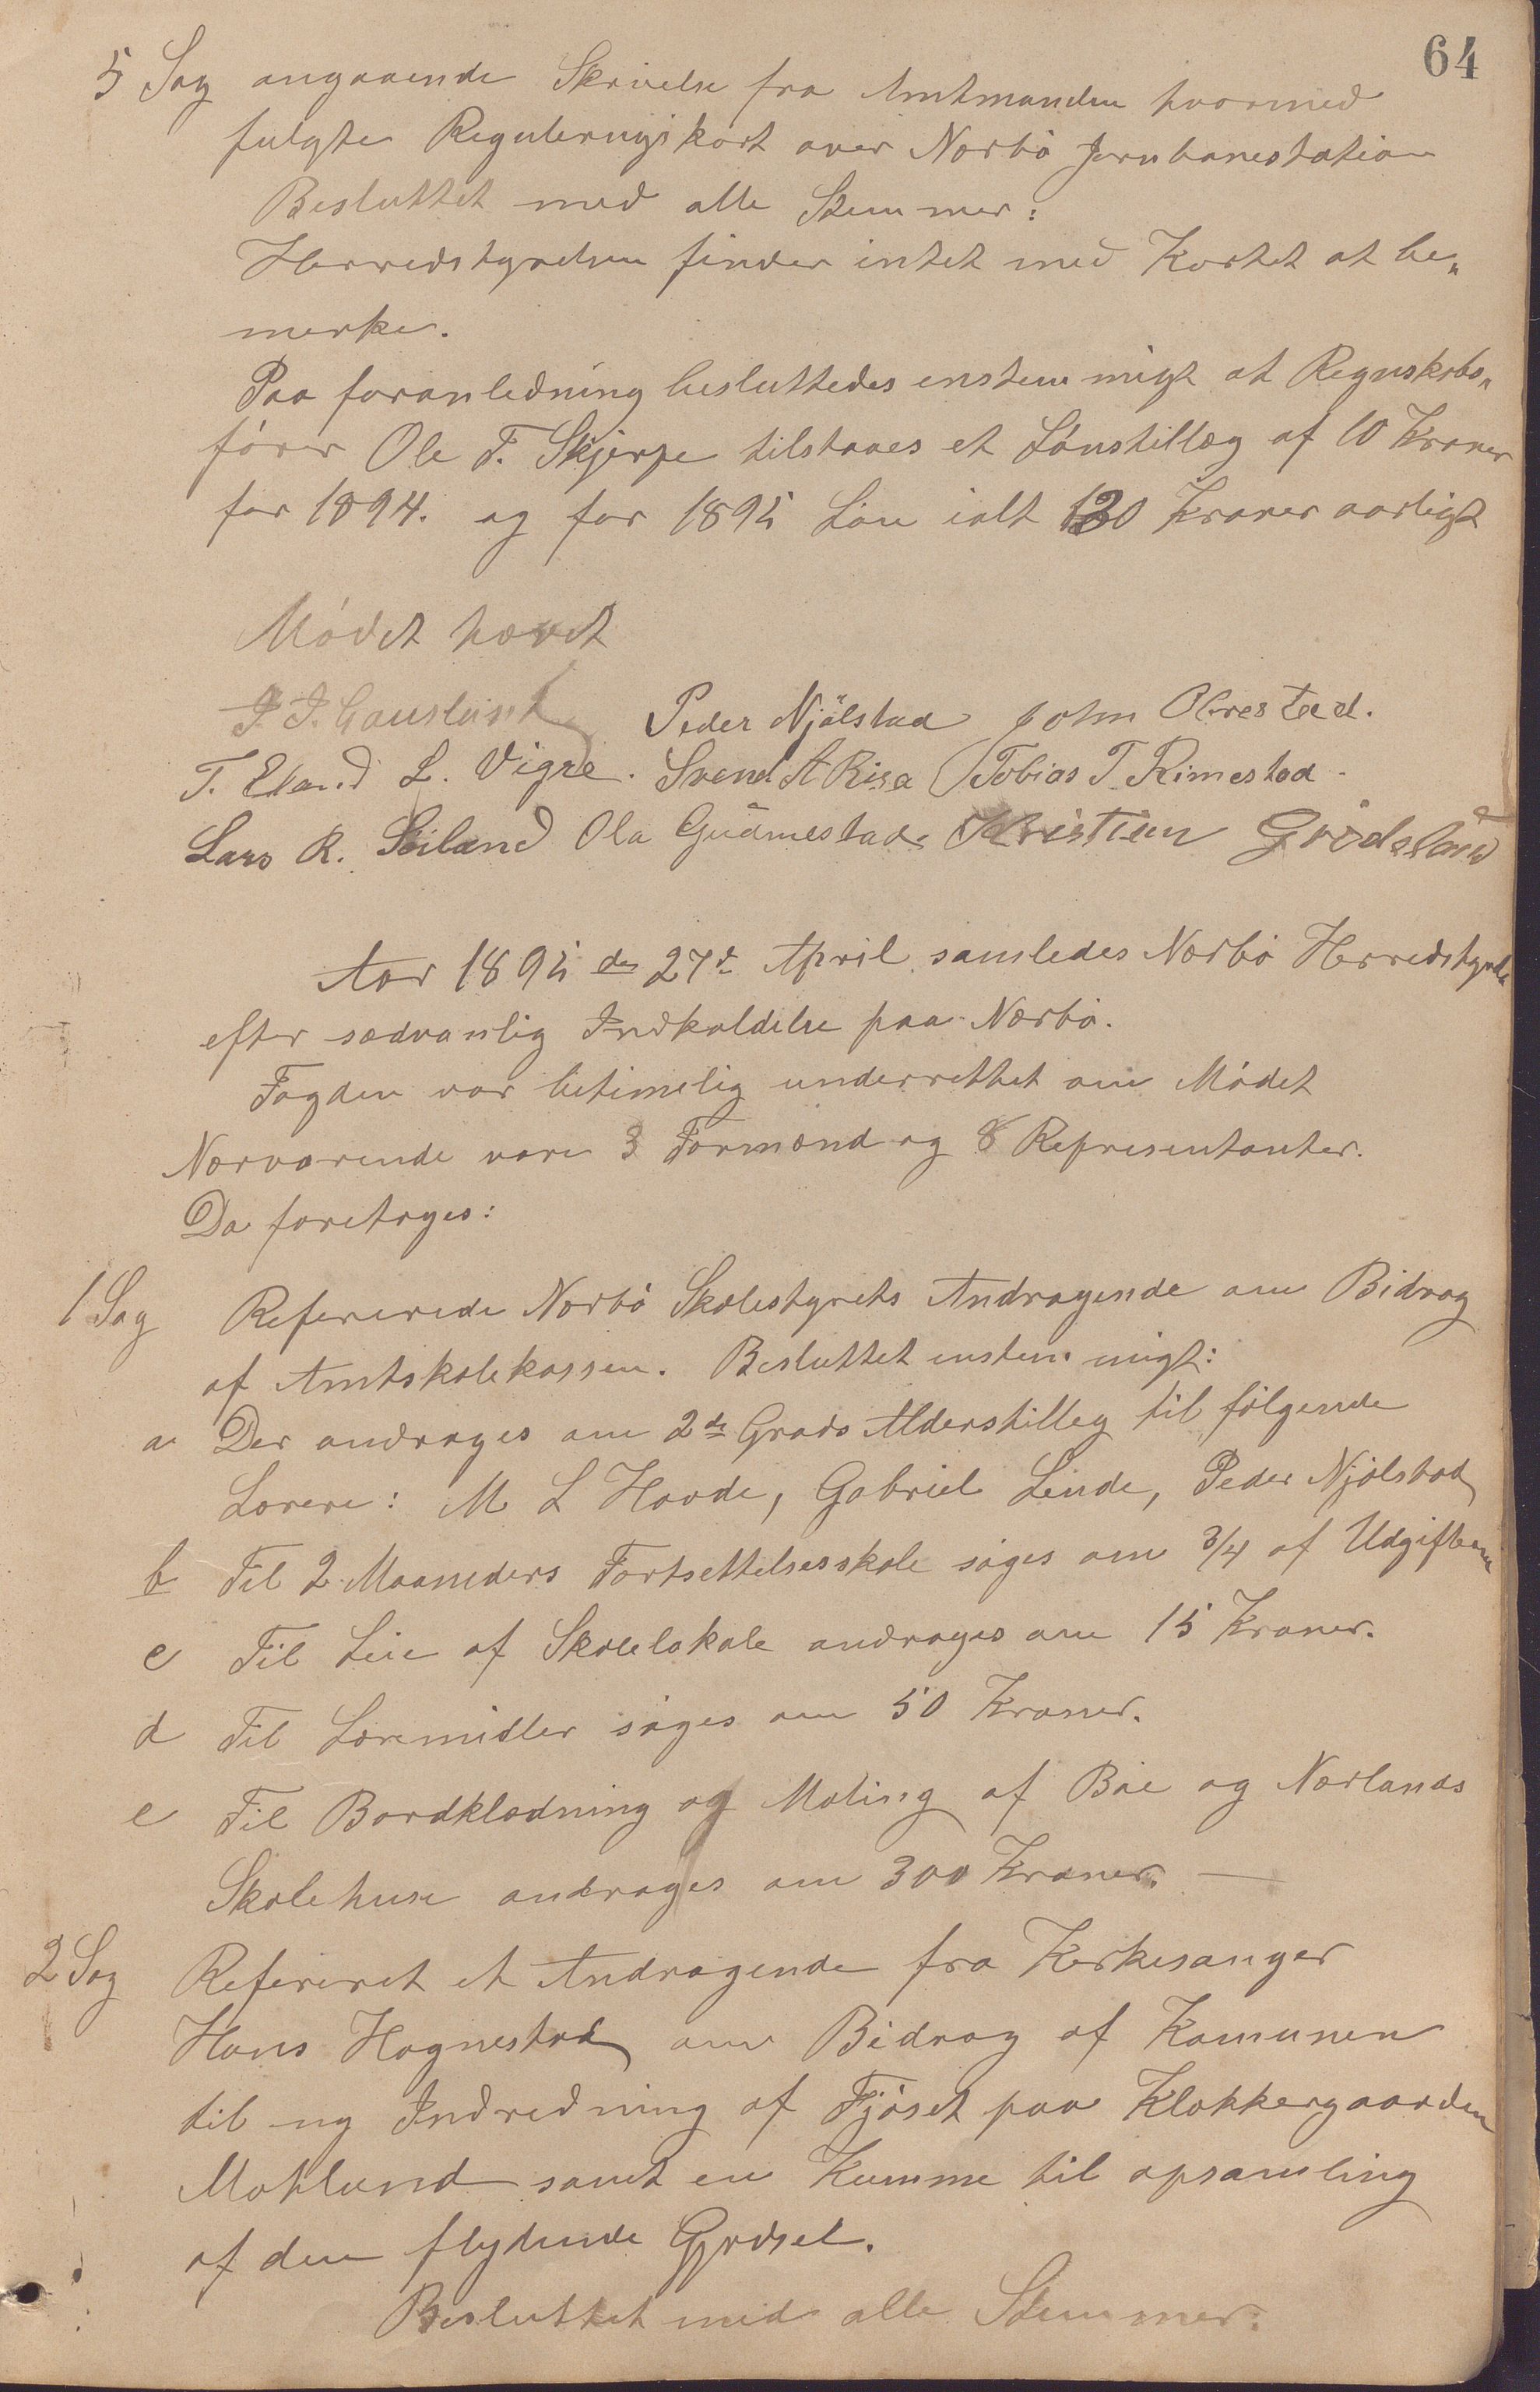 64
5 Sag angaaende Skrivelse fra Amtmanden hvormed
fulgte Reguleringskart over Nærbö Jernbanestation
Besluttet med alle Stemmer:
Herredstyrelsen finder intet med Kartet at be„
merke.
Paa foranledning besluttedes enstemmigt at Regnskabs„
förer Ole F. Skjerpe tilstaaes et Lönstillæg af 10 Kroner
for 1894. og for 1895 Lön ialt 120 Kroner aarligt
Mödet hævet
J. J. Gausland Peder Njölstad John Obrestad.
T. Eland L. Vigre. Svend A Risa Tobias T. Rimestad
Lars R. Seiland Ola Gudmestad. Kristian Grödeland
Aar 1895 den 27de April samledes Nærbö Herredstyrelse
efter sædvanlig Indkaldelse paa Nærbö.
Fogden var betimelig underrettet om Mödet
Nærværende vare 3 Formænd og 8 Representanter.
Da foretoges:
1 Sag Refererede Nærbö Skolestyrets Andragende om Bidrag
af Amtskolekassen. Besluttet enstemmigt:
a Der andrages om 2de Grads Alderstilleg til fölgende
Lærere: M L Havde, Gabriel Linde, Peder Njölstad
b Til 2 Maaneders Fortsettelsesskole söges om 3/4 af Udgifterne
c Til Leie af Skolelokale andrages om 15 Kroner.
d Til Læremidler söges om 50 Kroner.
e Til Bordklædning og Maling af Böe og Nærlands
Skolehuse andrages om 300 Kroner. —
2 Sag Refereret et Andragende fra Kerkesanger
Hans Hognestad om Bidrag af Kommunen
til ny Indredning af Fjöset paa Klokkergaarden
Motland samt en Kumme til opsamling
af den flydende Gjödsel.
Besluttet med alle Stemmer: